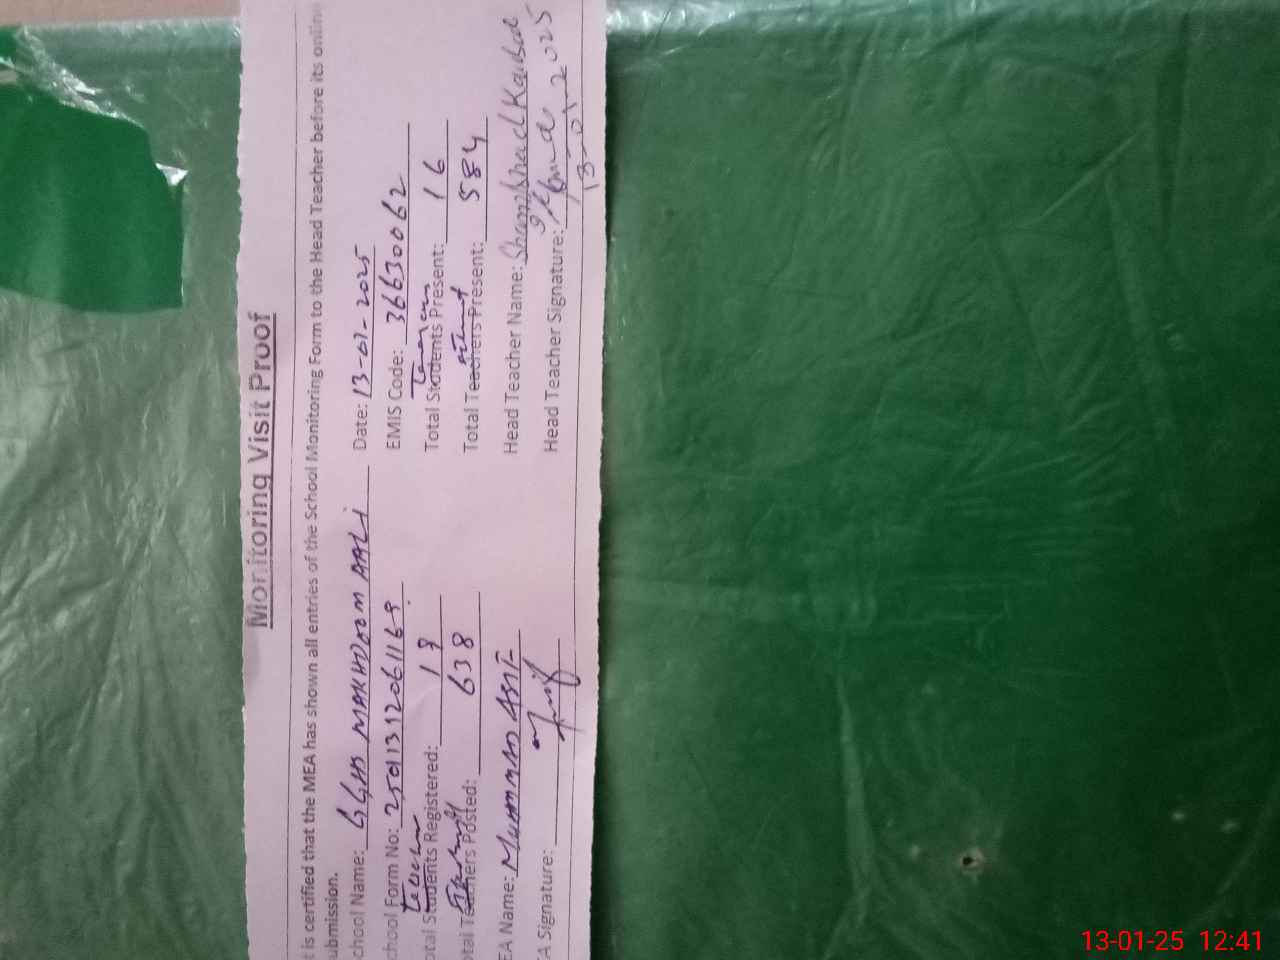 Monitoring Visit Proof
t is certified that the MEA has shown all entries of the School Monitoring Form to the Head Teacher before its online
ubmission.
chool Name: GGHS MAKHDOOM AALI Date: 13-01-2025
chool Form No: EMIS Code: 36630062
otal Students Registered: Total Students Present: 16
otal Teachers Posted: 638 Total Teachers Present: 584
EA Name: Head Teacher Name: Shamshad Kausar
A Signature: Head Teacher Signature:
13-01-2025
13-01-25 12:41